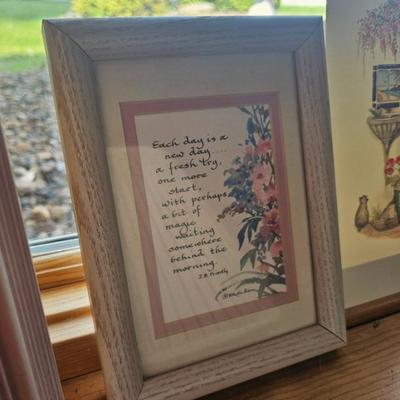 Each day is a
new day....
a fresh try,
one more
start,
with perhaps
a bit of
magic
waiting
somewhere
behind the
morning.
J.B. Priestly